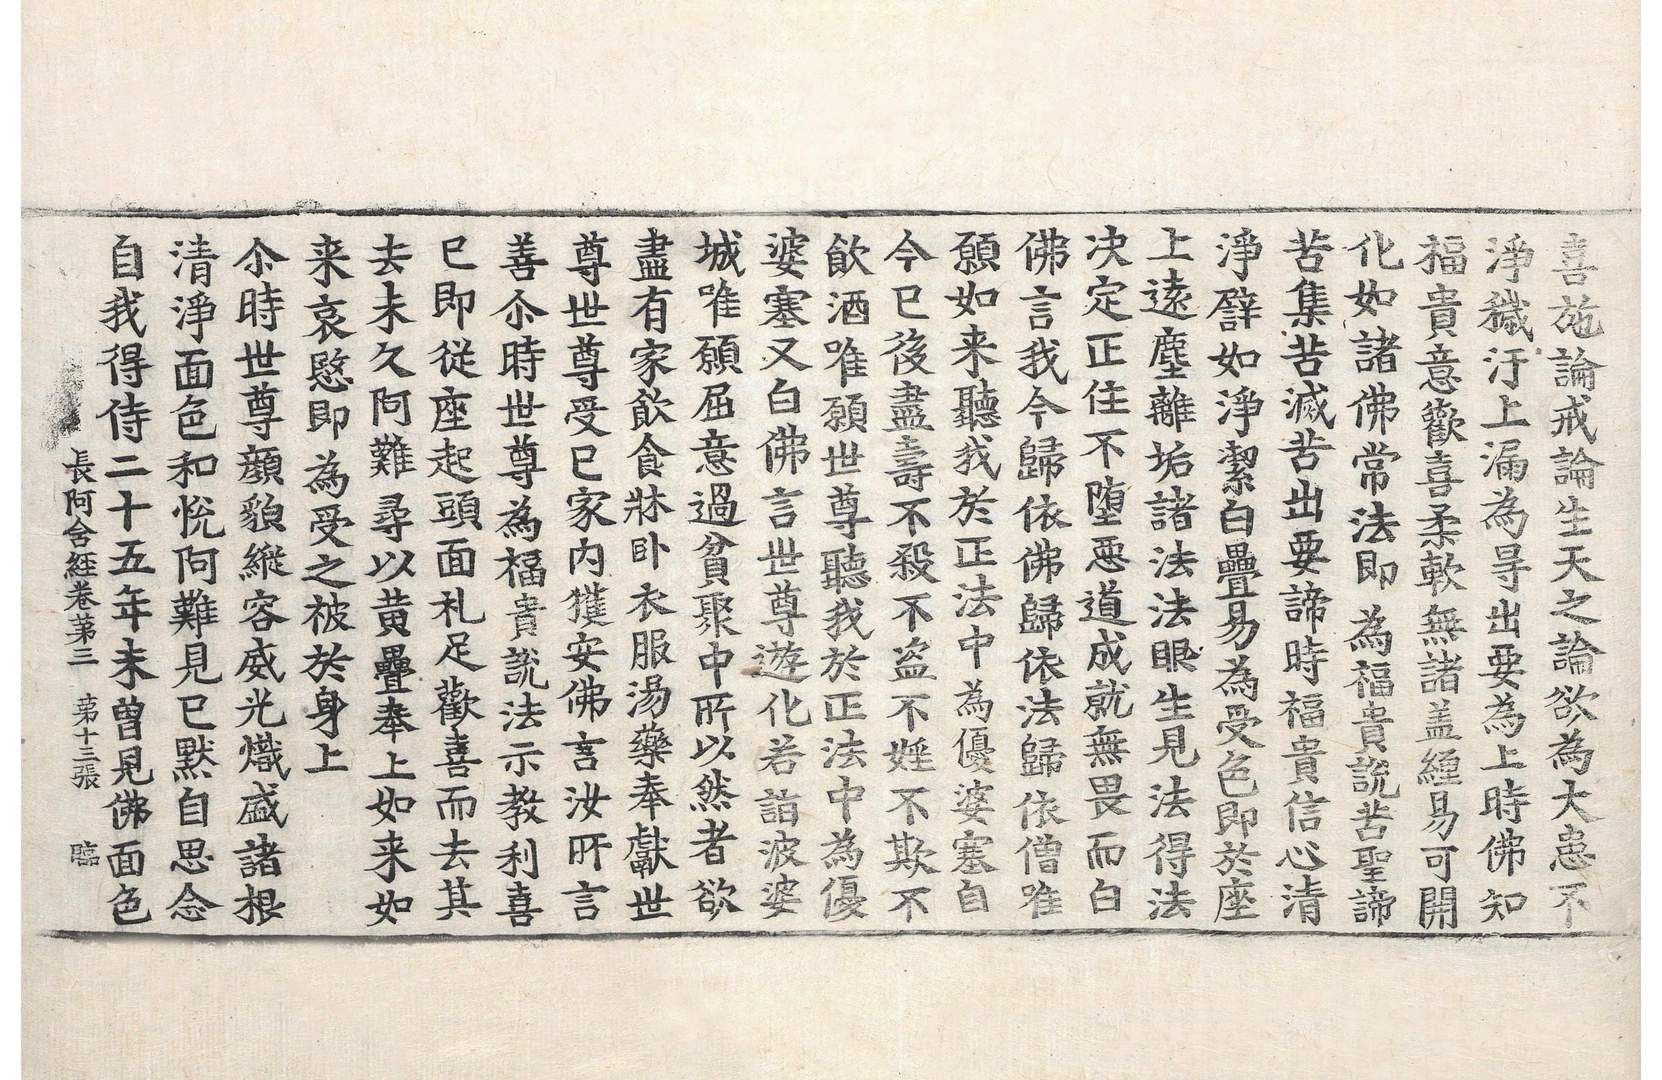 喜施論戒論生天之論欲為大患不
淨穢汙上漏為㝵出要為上時佛知
福貴意歡喜柔軟無諸盖纏易可開
化如諸佛常法即為福貴說苦聖諦
苦集苦滅苦出要諦時福貴信心清
淨譬如淨潔白疊易為受色即於座
上遠塵離垢諸法法眼生見法得法
决定正住不墮惡道成就無畏而白
佛言我今歸依佛歸依法歸依僧唯
願如来聽我於正法中為優婆塞自
今已後盡壽不殺不盜不婬不欺不
飲酒唯願世尊聽我於正法中為優
婆塞又白佛言世尊遊化若詣波婆
城唯願屈意過貧聚中所以然者欲
盡有家飲食牀卧衣服湯藥奉獻世
尊世尊受已家内獲安佛言汝所言
善尒時世尊為福貴說法示教利喜
已即從座起頭面礼足歡喜而去其
去未久阿難尋以黄疊奉上如来如
来哀愍即為受之被於身上
尒時世尊顔貌縱容威光熾盛諸根
清淨面色和恱阿難見已默自思念
自我得侍二十五年未曽見佛面色
長阿含經卷第三 第十三張 臨